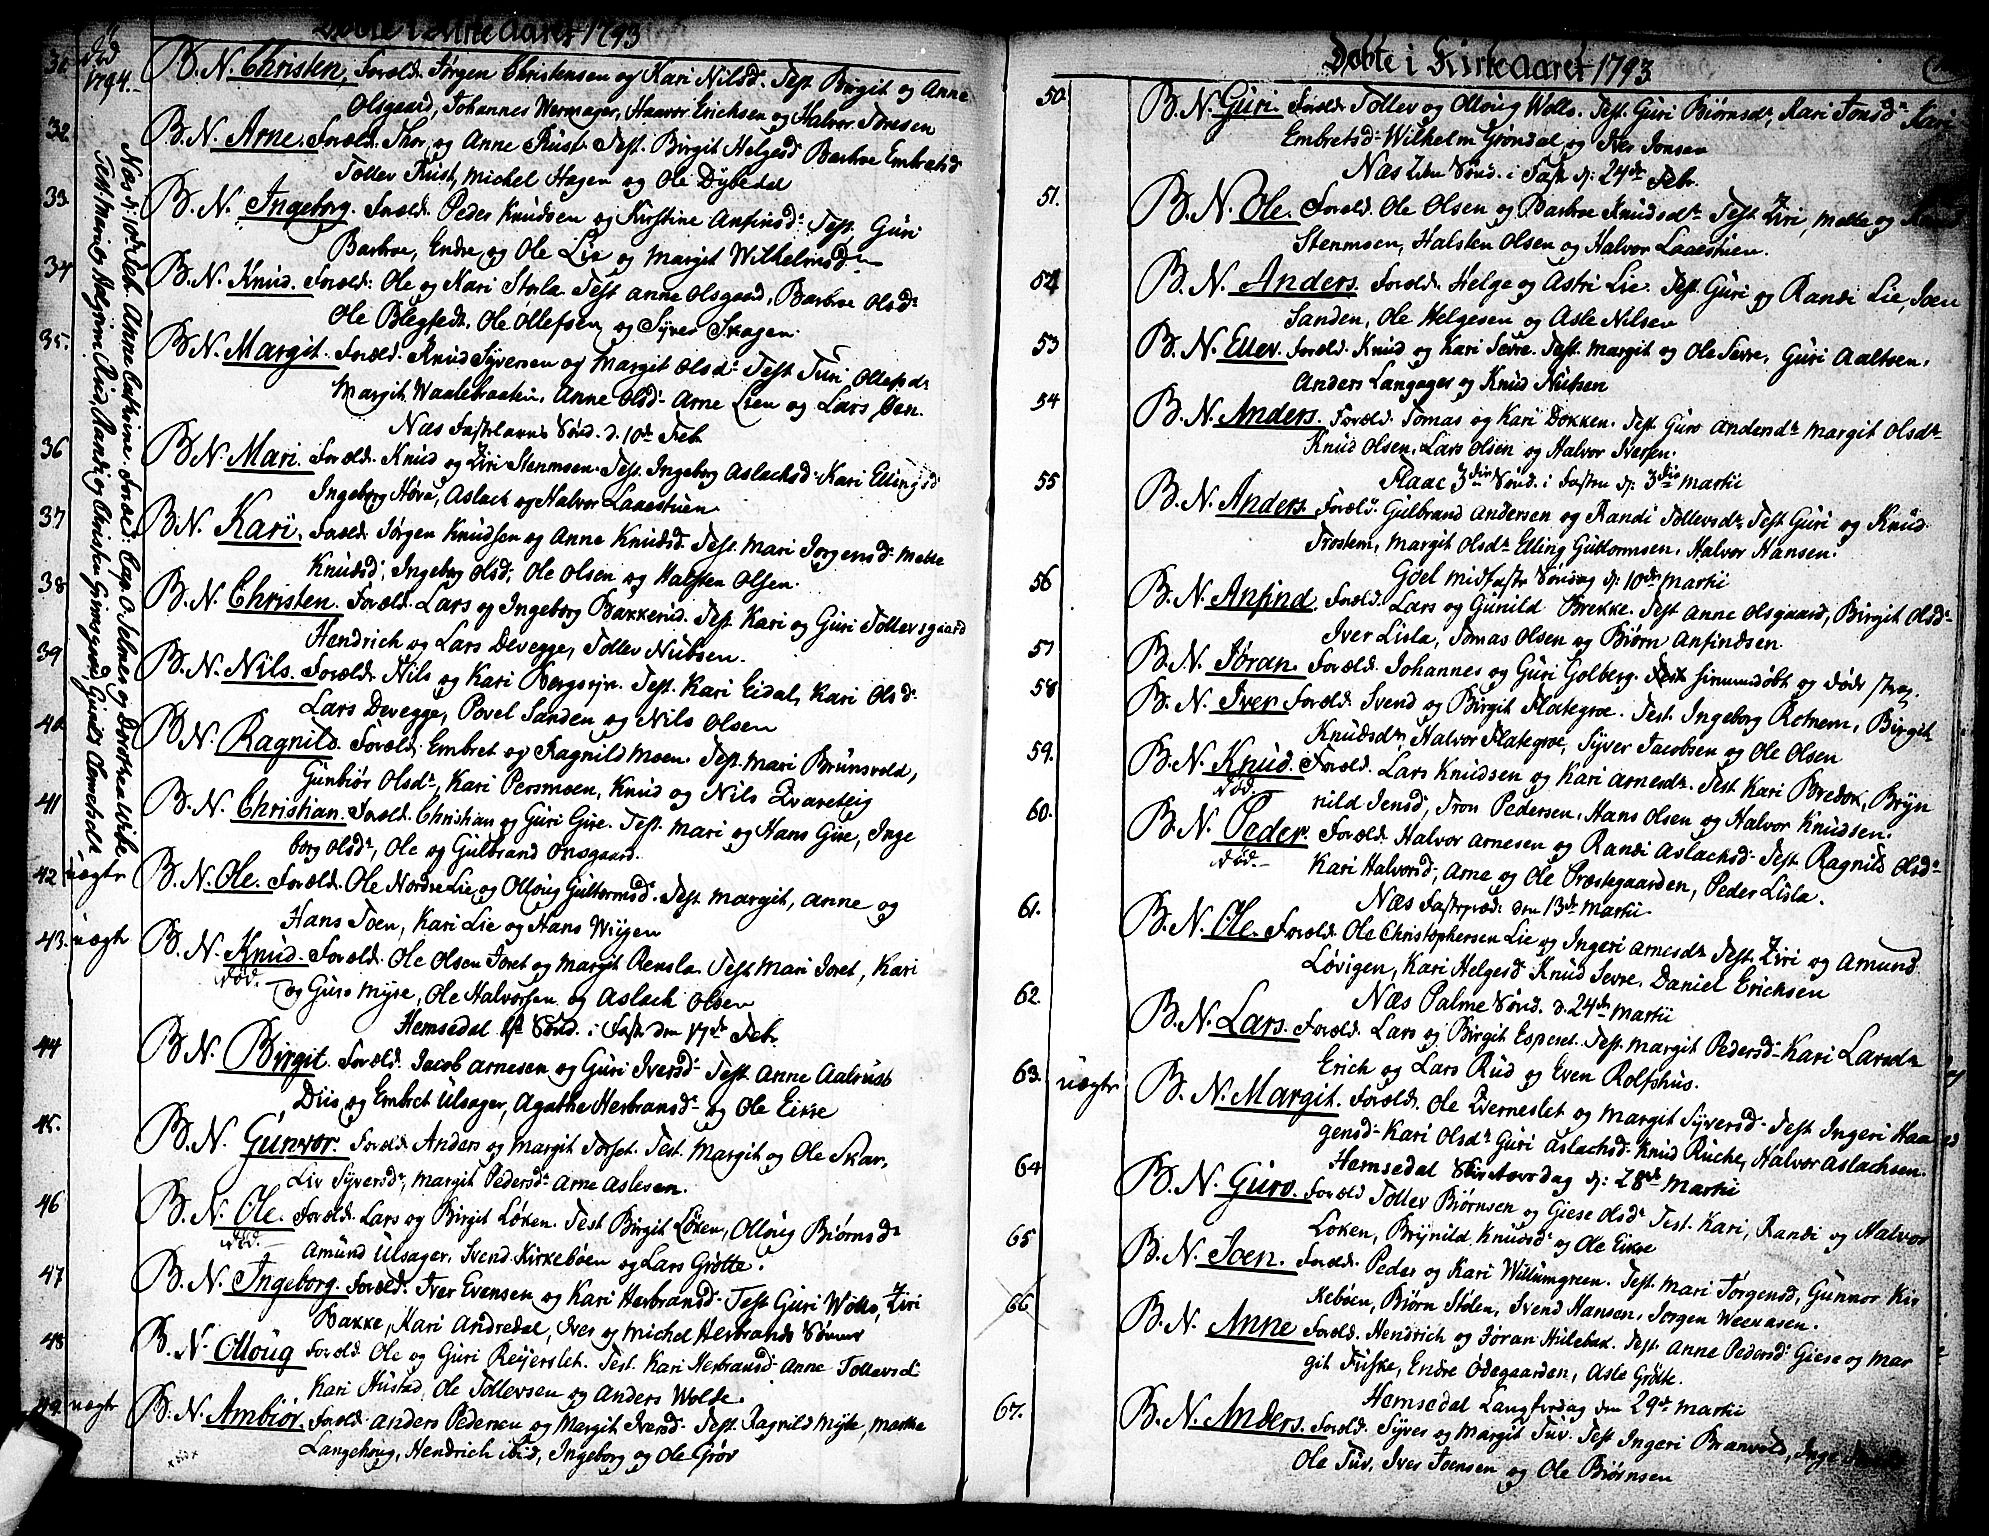 Døbte i Kirke Aaret 1793
31. død 1794. B. N. Christen, Foræld. Jørgen Christensen og Kari Nilsdr. Test. Birgit og Anne
Olsgaard, Johannes Wermager, Haavor Erichsen og Halvor Toresen
32. B. N. Arne. Foræld. Thor og Anne Rust. Test. Birgit Helgesd Barbroe Embretsd
Tollev Rust, Michel Hagen og Ole Dybedal
33. B. N. Ingeborg. Foræld. Peder Knudsen og Kirstine Anfinsdr. Test. Guri
Barbroe, Endre og Ole Lie og Margit Wilhelmsdr
34. B. N. Knud. Foræld. Ole og Kari Storla. Test Anne Olsgaard, Barbroe Olsdr
Ole Blegset. Ole Ollefsen og Syver Skagen
35. B. N. Margit. Foræld. Knud Syversen og Margit Olsdr. Test Turi Ollefsdr
Margit Waalebraaten, Anne Olsdr Arne Lien og Lars Øen.
Næs Fastelavns Sønd. d. 10de Feb
36 B. N. Mari. Foræld. Knud og Ziri Stenmoen. Test. Ingeborg Aslachsd. Kari Ellingsd
Ingeborg Høva, Aslack og Halvor Laaestuen
37 B. N. Kari. Foræld. Jørgen Knudsen og Anne Knudsd. Test. Mari Jorgensd. Mette
Knudsd, Ingeborg Olsd, Ole Olsen og Halsten Olsen.
38 B. N. Christen. Foræld. Lars og Ingeborg Bakkerud. Test. Kari og Guri Tollevsgaard
Hendrich og Lars Devegge, Tollev Nubsen.
39 B. N. Nils. Foræld. Nils og Kari Bergsejn. Test. Kari Eidal, Kari Olsdr
Lars Devegge, Povel Sanden og Nils Olsen
40 B. N. Ragnild. Foræld. Embret og Ragnild Moen. Test. Mari Brunsvold,
Gunbiør Olsdr, Kari Persmoen, Knud og Nils Zvareteig
41 B. N. Christian. Foræld. Christian og Guri Give. Test. Mari og Hans Give, Inge
borg Olsdr, Ole og Gulbrand Onsgaard.
42 uægte B. N. Ole. Foræld. Ole Nordre Lie og Olloug Guttormsd. Test. Margit, Anne og
Hans Toen, Kari Lie og Hans Wiigen
43. uægte B. N. Knud. Foræld. Ole Olsen Joret og Margit Rensla. Test Mari Joret, Kari
død. og Guro Myre, Ole Halvorsen og Aslach Olsen
Hemsedal 1st Sønd. i Faste den 17de Feb.
44 B. N. Birgit. Foræld. Jacob Arnesen og Guri Iversd. Test. Anne Aalrust
Diis og Embret Ulsager, Agathe Herbransd og Ole Eikre
45. B. N. Gunvor. Foræld. Anders og Margit Torset. Test. Margit og Ole Skar,
Liv Syversdr, Margit Pedersdr Arne Aslesen.
46 B. N. Ole. Foræld. Lars og Birgit Løken. Test Birgit Løken, Olloug Biørnsdr
død. Amund Ulsager. Svend Kirkebøen og Lars Grøtte.
47 B. N. Ingeborg. Foræld. Iver Evensen og Kari Herbransd. Test Guri Wolle, Ziri
Bakke, Kari Andredal, Iver og Michel Herbrands Sønner
48 B. N. Olloug Foræld. Ole og Guri Reijerslet. Test. Kari Herbransd. Anne Tollevsd
Kari Hustad, Ole Tollevsen og Anders Wolde.
49 uægte B. N. Ambiør. Foræld. Anders Pedersen og Margit Iversd. Test. Ragnild Myre, Marthe
Langehoug, Hendrich ibid, Ingeborg og Ole Grøv
Næs d: 10de Feb. Anne Catrine. Foræld: Cap. O. Selmer og Dorothea Wirke
Test. Marie og Halgrim Ruud, Randi og Christen Grimsgaard, Gunild Olmeholt
Døbte i Kirke Aaret 1793
50. B. N. Guri. Foræld. Tollev og Olloug Wolle. Test. Guri Biørnsdr, Kari Jonsdr Kari
Embretsd. Wilhelm Grøndal og Iver Jonsen
Næs 2den Sønd. i Fast d. 24de Febr.
51. B. N. Ole. Foræld. Ole Olsen og Barbroe Knudsdr Test Ziri, Mette og
Stenmoen, Halsten Olsen og Halvor Laaestuen.
52 B. N. Anders. Foræld. Helge og Astri Lie. Test. Guri og Randi Lie, Joen
Sanden, Ole Helgesen og Asle Nilsen
53 B. N. Ellev. Foræld. Knud og Kari Sevre. Test. Margit og Ole Sevre, Guri Aaltven,
Anders Langager og Knud Nubsen
54 B. N. Anders. Foræld. Tomas og Kari Dokken. Test. Guro Andersdr Margit Olsdr
Knud Olsen, Lars Olsen og Halvor Iversen.
Flaae 3die Sønd. i Fasten d: 3die Martii
55 B. N. Anders. Foræld. Gulbrand Andersen og Randi Tollevsdr. Test Guri og Knud
Trostem, Margit Olsdr Elling Guttormsen, Halvor Hansen.
Goel Midfaste Søndag d: 10de Martii
56 B. N. Anfind. Foræld. Lars og Gunild Brekke. Test Anne Olsgaard, Birgit Olsdr
Iver Lisla, Tomas Olsen og Biørn Anfindsen
57 B. N. Jøran. Foræld. Johannes og Guri Golberg. Test hiemmedøbt og døde strax.
58 B. N. Iver. Foræld. Svend og Birgit Flategroe. Test. Ingeborg Rotnem, Birgit
Knudsdr, Halvor Flategroe, Syver Jacobsen og Ole Olsen
59. B. N. Knud. Foræld. Lars Knudsen og Kari Arnesdr. Test. Kari Bredok, Bryn
død. nild Jensd, Tron Pedersen, Hans Olsen og Halvor Knudsen.
60. B. N. Peder. Foræld. Halvor Arnesen og Randi Aslacksd. Test. Ragnild Olsdr
død. Kari Halvorsd, Arne og Ole Præstegaarden, Peder Lisla.
Næs Fastepræd. den 13de Martii
61. B. N. Ole. Foræld. Ole Christophersen Lie og Ingeri Arnesdr Test. Ziri og Amund
Løvigen, Kari Helgesd Knud Sevre, Daniel Erichsen
Næs Palme Sønd. d. 24de Martii
62. B. N. Lars. Foræld. Lars og Birgit Espeset. Test. Margit Pedersd Kari Larsdr
Erich og Lars Rud og Even Rolfshus.
63. uægte B. N. Margit. Foræld. Ole Zverneslet og Margit Syversd. Test Ingeri Haa
gensd. Kari Olsdr Guri Aslachsd. Knud Ruche, Halvor Aslachsen.
Hemsedal Skiertorsdag d: 28de Martii
64 B. N. Guro. Foræld Tollev Biørnsen og Giese Olsdr Test. Kari, Randi og Halvor
Loken, Brynild Knudsd og Ole Eikre
65 B. N. Joen. Foræld. Peder og Kari Willumgreen. Test. Mari Jørgensd, Gunnor Kir
kebøen, Biørn Stolen, Svend Hansen, Jorgen Weexasen.
66 B. N. Anne Foræld. Hendrich og Jøran Hulebak. Test. Anne Pedersd. Giese og Mar
git Fuske, Endre Ødegaarden, Asle Grøtte.
Hemsedal Langfredag den 29de Martii
67. B. N. Anders. Foræld. Syver og Margit Tuv. Test Ingeri Branvold, Inge
Ole Tuv, Iver Joensen og Ole Biørnsen